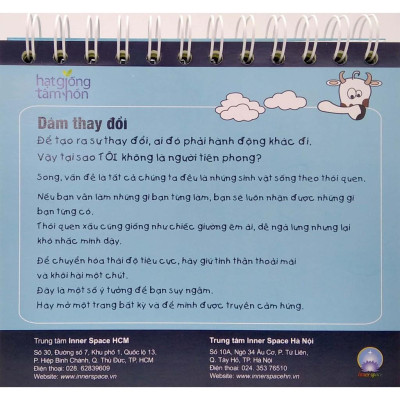 hạt giống
tâm hồn
Dám thay đổi
Để tạo ra sự thay đổi, ai đó phải hành động khác đi.
Vậy tại sao TÔI không là người tiên phong?
Song, vấn đề là tất cả chúng ta đều là những sinh vật sống theo thói quen.
Nếu bạn vẫn làm những gì bạn từng làm, bạn sẽ luôn nhận được những gì
bạn từng có.
Thói quen xấu cũng giống như chiếc giường êm ái, dễ ngả lưng nhưng lại
khó nhấc mình dậy.
Để chuyển hóa thái độ tiêu cực, hãy giữ tinh thần thoải mái
và khôi hài một chút.
Đây là một số ý tưởng để bạn suy ngẫm.
Hãy mở một trang bất kỳ và để mình được truyền cảm hứng.
Trung tâm Inner Space HCM
Số 30, Đường số 7, Khu phố 1, Quốc lộ 13,
P. Hiệp Bình Chánh, Q. Thủ Đức, TP. HCM
Điện thoại: 028. 62839609
Website: www.innerspace.vn
Trung tâm Inner Space Hà Nội
Số 10A, Ngõ 34 Âu Cơ, P. Tứ Liên,
Q. Tây Hồ, TP. Hà Nội
Điện thoại: 024. 353 76510
Website: www.innerspacehn.vn